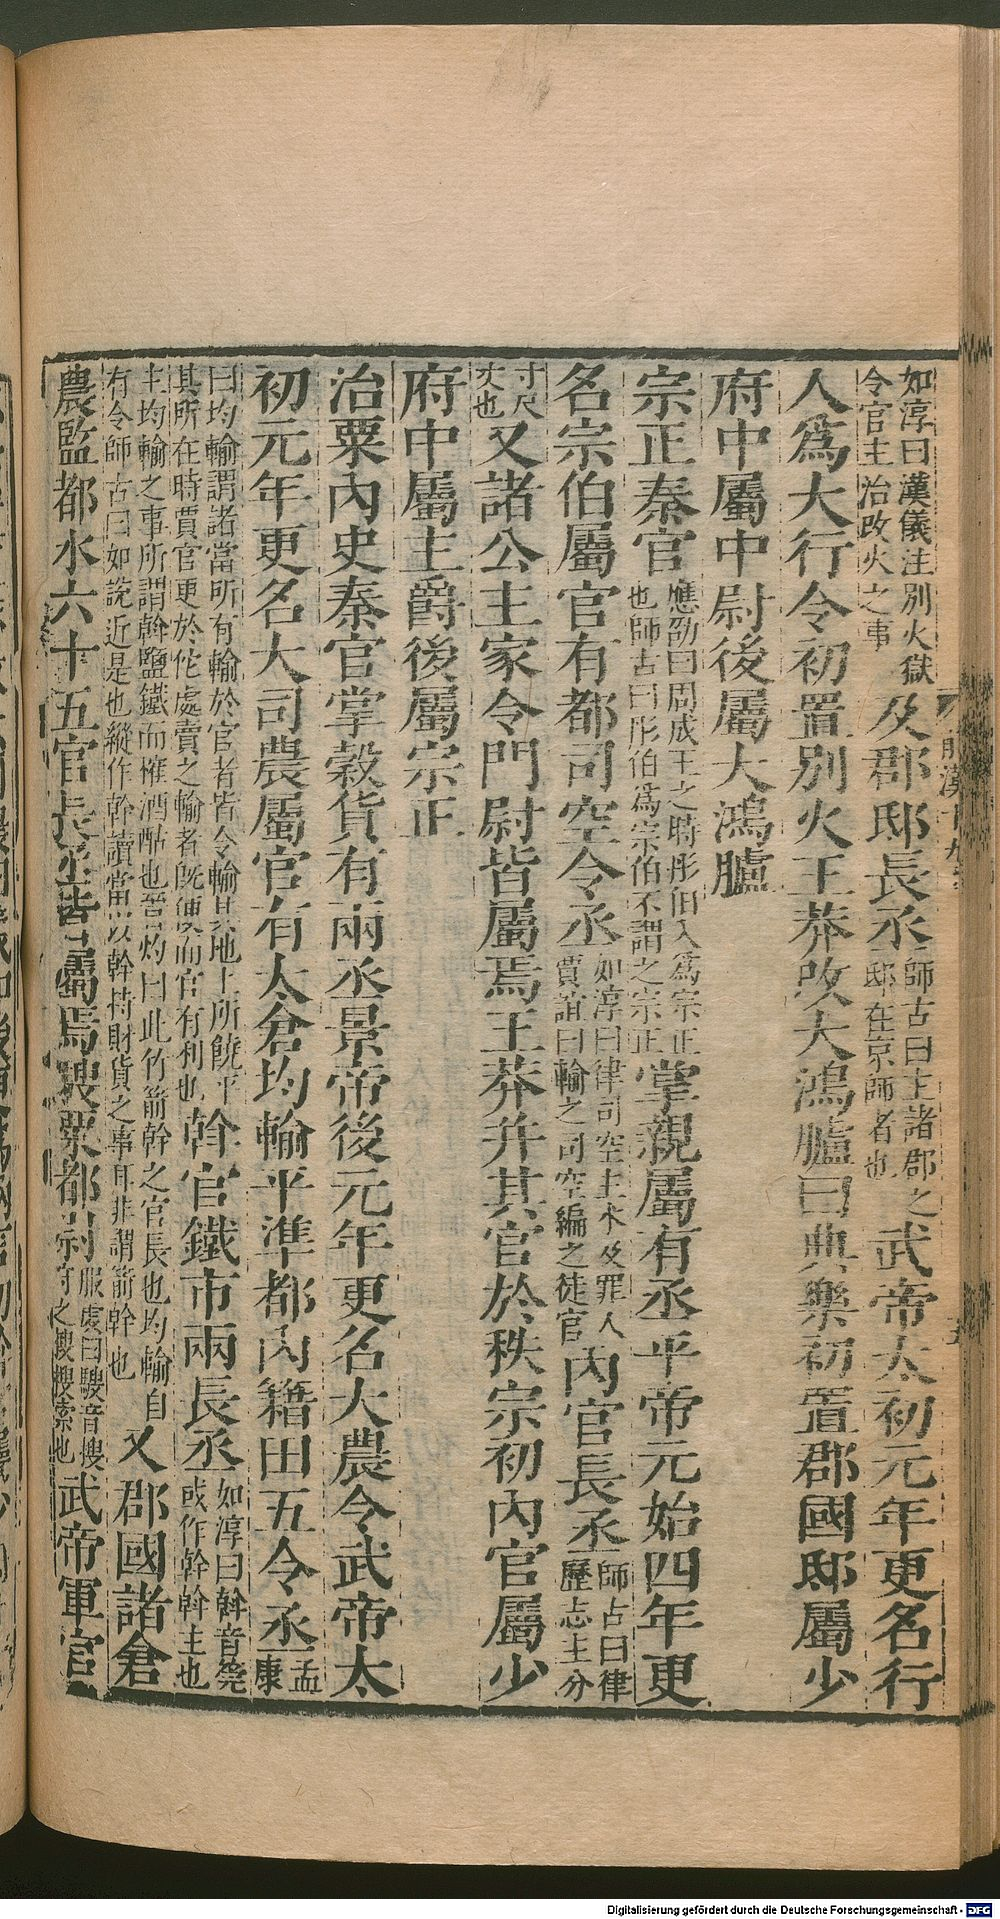 如淳曰漢儀注別火獄令官主治改火之事及郡邸長丞師古曰主諸郡之邸在京師者也武帝太初元年更名行
人爲大行令初置別火王莽改大鴻臚曰典樂初置郡國邸屬少
府中屬中尉後屬大鴻臚
宗正秦官應劭曰周成王之時彤伯入爲宗正也師古曰彤伯爲宗伯不謂之宗正掌親屬有丞平帝元始四年更
名宗伯屬官有都司空令丞如淳曰律司空主水及罪人賈誼曰輸之司空編之徒官內官長丞師古曰律歷志主分
寸尺丈也又諸公主家令門尉皆屬焉王莽并其官於秩宗初內官屬少
府中屬主爵後屬宗正
治粟內史秦官掌穀貨有兩丞景帝後元年更名大農令武帝太
初元年更名大司農屬官有太倉均輸平準都內籍田五令丞孟康
曰均輸謂諸當所有輸於官者皆令輸其地土所饒平其所在時賈官更於佗處賣之輸者旣便而官有利也斡官鐵市兩長丞如淳曰斡音筦或作幹斡主也
主均輸之事所謂斡鹽鐵而榷酒酤也晉灼曰此竹箭幹之官長也均輸自有令師古曰如說近是也縱作幹讀當以斡持財貨之事耳非謂箭幹也又郡國諸倉
農監都水六十五官長丞皆屬焉騪粟都尉服虔曰騪音搜狩之搜搜索也武帝軍官
前漢十九
五
Digitalisierung gefördert durch die Deutsche Forschungsgemeinschaft - DFG